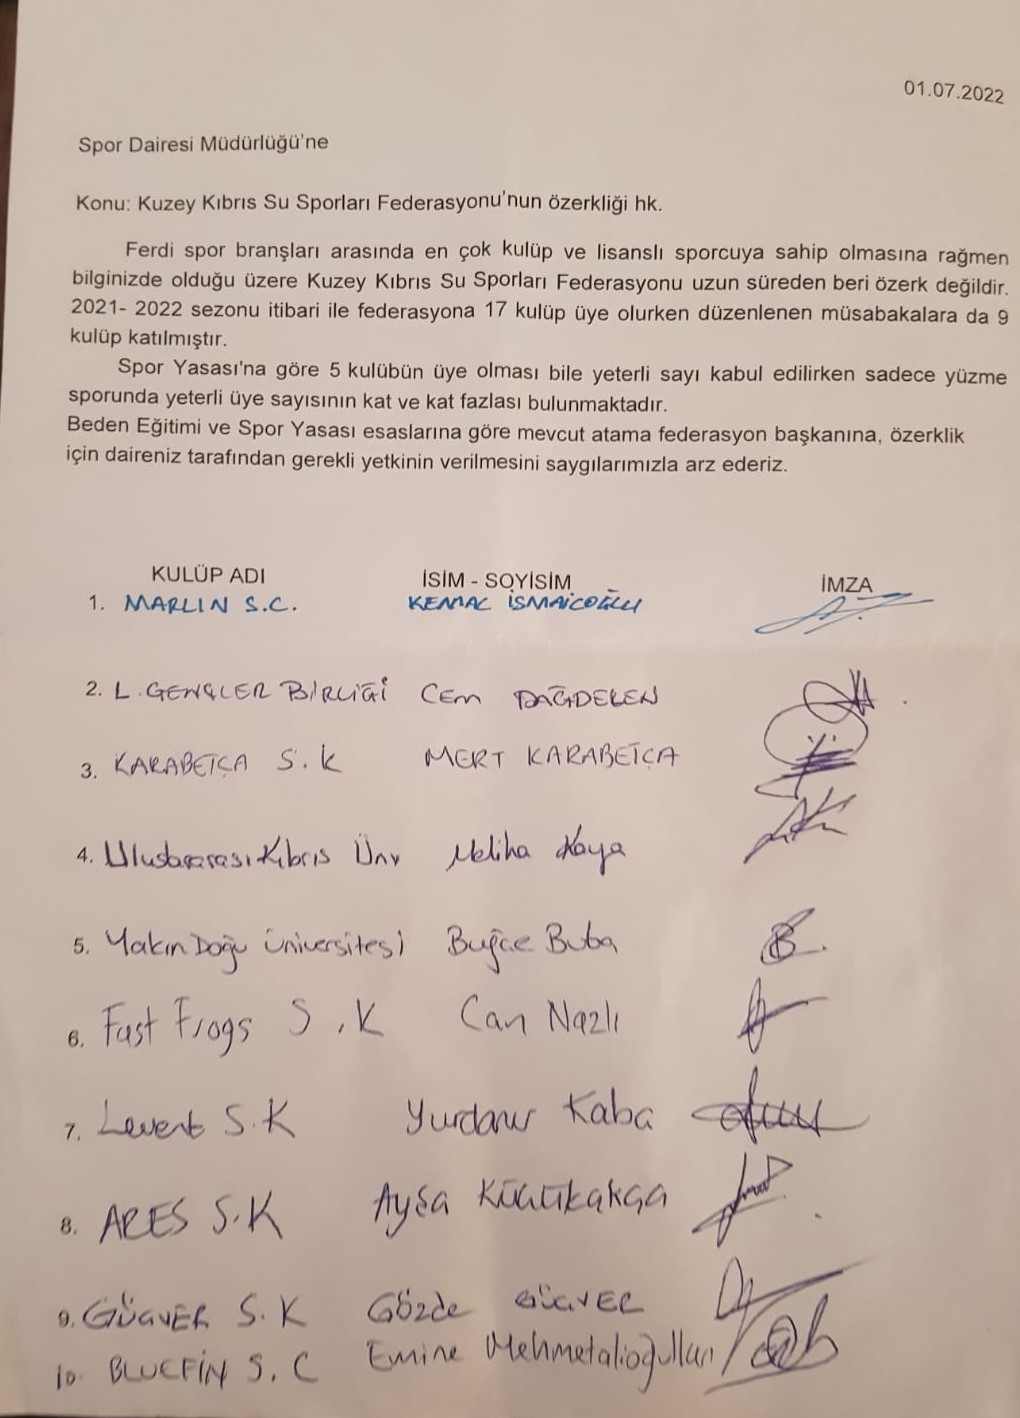 01.07.2022
Spor Dairesi Müdürlüğü'ne
Konu: Kuzey Kıbrıs Su Sporları Federasyonu'nun özerkliği hk.
Ferdi spor branşları arasında en çok kulüp ve lisanslı sporcuya sahip olmasına rağmen
bilginizde olduğu üzere Kuzey Kıbrıs Su Sporları Federasyonu uzun süreden beri özerk değildir.
2021- 2022 sezonu itibari ile federasyona 17 kulüp üye olurken düzenlenen müsabakalara da 9
kulüp katılmıştır.
Spor Yasası'na göre 5 kulübün üye olması bile yeterli sayı kabul edilirken sadece yüzme
sporunda yeterli üye sayısının kat ve kat fazlası bulunmaktadır.
Beden Eğitimi ve Spor Yasası esaslarına göre mevcut atama federasyon başkanına, özerklik
için daireniz tarafından gerekli yetkinin verilmesini saygılarımızla arz ederiz.
KULÜP ADI İSİM - SOYİSİM İMZA
1. MARLIN S.C. KEMAL İSMAİLOĞLU
2. L. GENÇLER BİRLİĞİ Cem DAĞDELEN
3. KARABETÇA S.K MERT KARABETÇA
4. Uluslararası Kıbrıs Ünv Meliha Kaya
5. Yakın Doğu Üniversitesi Buğçe Buba
6. Fast Frogs S.K Can Nazlı
7. Levent S.K Yurdanur Kaba
8. ARES S.K Ayşa Küçükakça
9. GÜÇVER S.K Gözde GÜÇVER
10. BLUEFİN S.C Emine Mehmetalioğulları